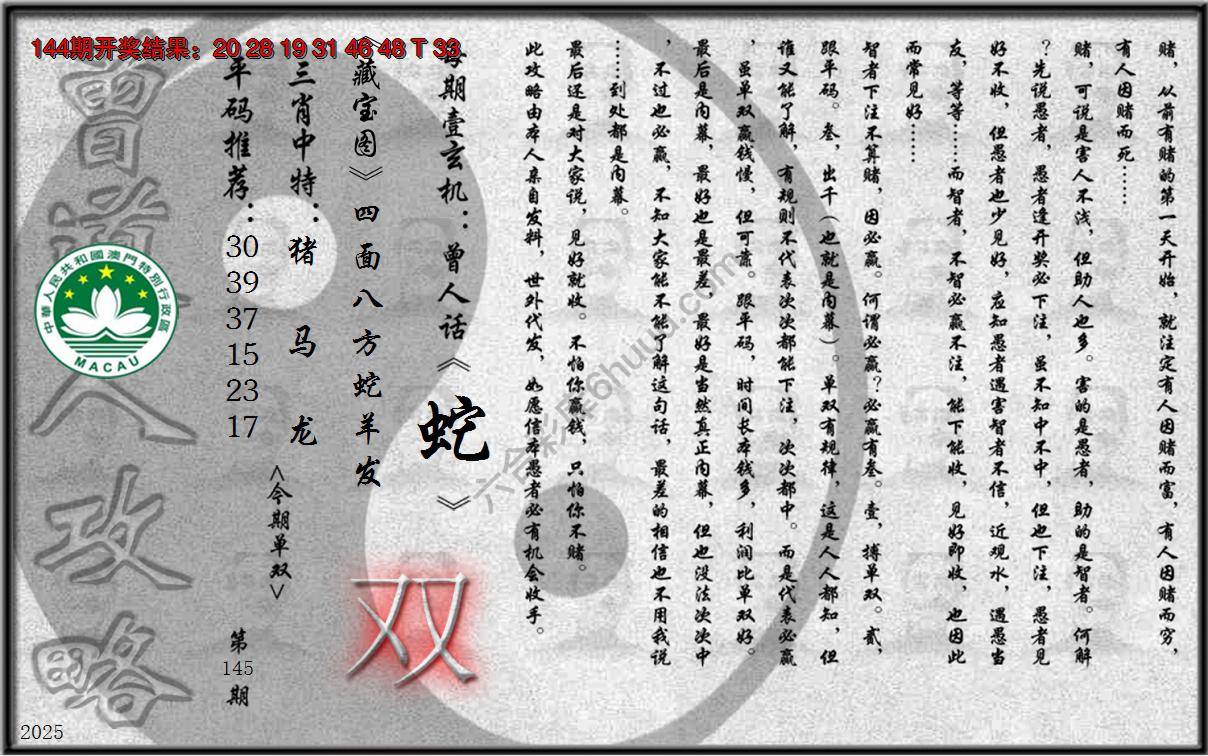 144期开奖结果：20 28 19 31 46 48 T 33
赌，从前有赌的第一天开始，就注定有人因赌而富，有人因赌而穷，
有人因赌而死……
赌，可说是害人不浅，但助人也多。害的是愚者，助的是智者。何解
？先说愚者，愚者逢开奖必下注，虽不知中不中，但也下注，愚者见
好不收，但愚者也少见好，应知愚者遇害智者不信，近观水，遇愚当
友，等等……而智者，不智必赢不注，能下能收，见好即收，也因此
而常见好……
智者下注不算赌，因必赢。何谓必赢？必赢有叁。壹，搏单双。贰，
跟平码。叁，出千（也就是内幕）。单双有规律，这是人人都知，但
谁又能了解，有规则不代表次次都能下注，次次都中。而是代表必赢
，虽单双赢钱慢，但可靠。跟平码，时间长本钱多，利润比单双好。
最后是内幕，最好也是最差，最好是当然真正内幕，但也没法次次中
，不过也必赢，不知大家能不能了解这句话，最差的相信也不用我说
……到处都是内幕。
最后还是对大家说，见好就收。不怕你赢钱，只怕你不赌。
此攻略由本人亲自发料，世外代发，如愿信本愚者必有机会收手。
每期壹玄机：曾人话《蛇》
《藏宝图》四面八方蛇羊发
双
三肖中特：猪 马 龙
<今期单双>
平码推荐：30 39 37 15 23 17
第145期
曾道人攻略
中華人民共和國澳門特別行政區
MACAU
六合彩库6huuu.com
2025